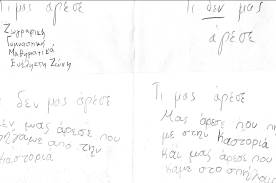 Τι μας άρεσε
Ζωγραφική
Γυμναστική
Μαθηματικά
Ευέλικτη Ζώνη
Τι δεν μας
άρεσε
δεν μας άρεσε
δεν μας άρεσε που
από την
Καστοριά
Τι μας άρεσε
Μας άρεσε που
με στην Καστοριά
και μας άρεσε που
στο